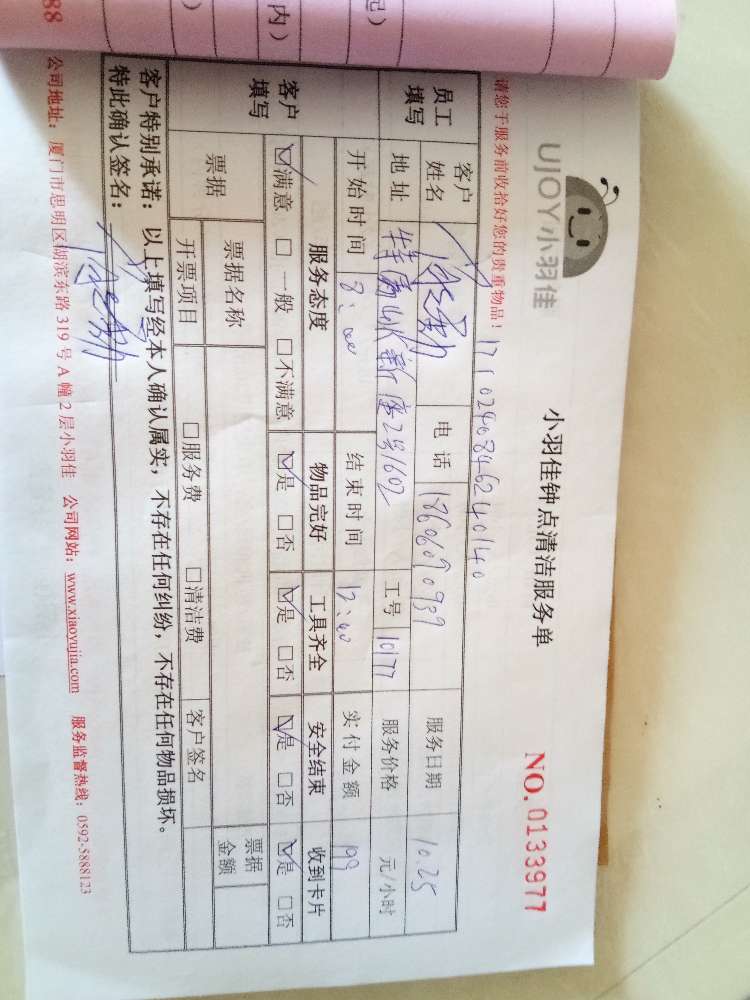 起）
内）
）
88
UJOY小羽佳
小羽佳钟点清洁服务单
NO. 0133977
请您于服务前收拾好您的贵重物品！ 1710240846240140
员工填写 客户姓名 电话 18606090939 服务日期 10.25
地址 2号1602 工号 10177 服务价格 元/小时
开始时间 8:00 结束时间 12:00 实付金额 199
客户填写 服务态度 物品完好 工具齐全 安全结束 收到卡片
☑满意 □一般 □不满意 ☑是 □否 ☑是 □否 ☑是 □否 ☑是 □否
票据 票据名称 票据金额
开票项目 □服务费 □清洁费 客户签名
客户特别承诺：以上填写经本人确认属实，不存在任何纠纷，不存在任何物品损坏。
特此确认签名：
公司地址：厦门市思明区湖滨东路319号A幢2层小羽佳 公司网站：www.xiaoyujia.com 服务监督热线：0592-5888123